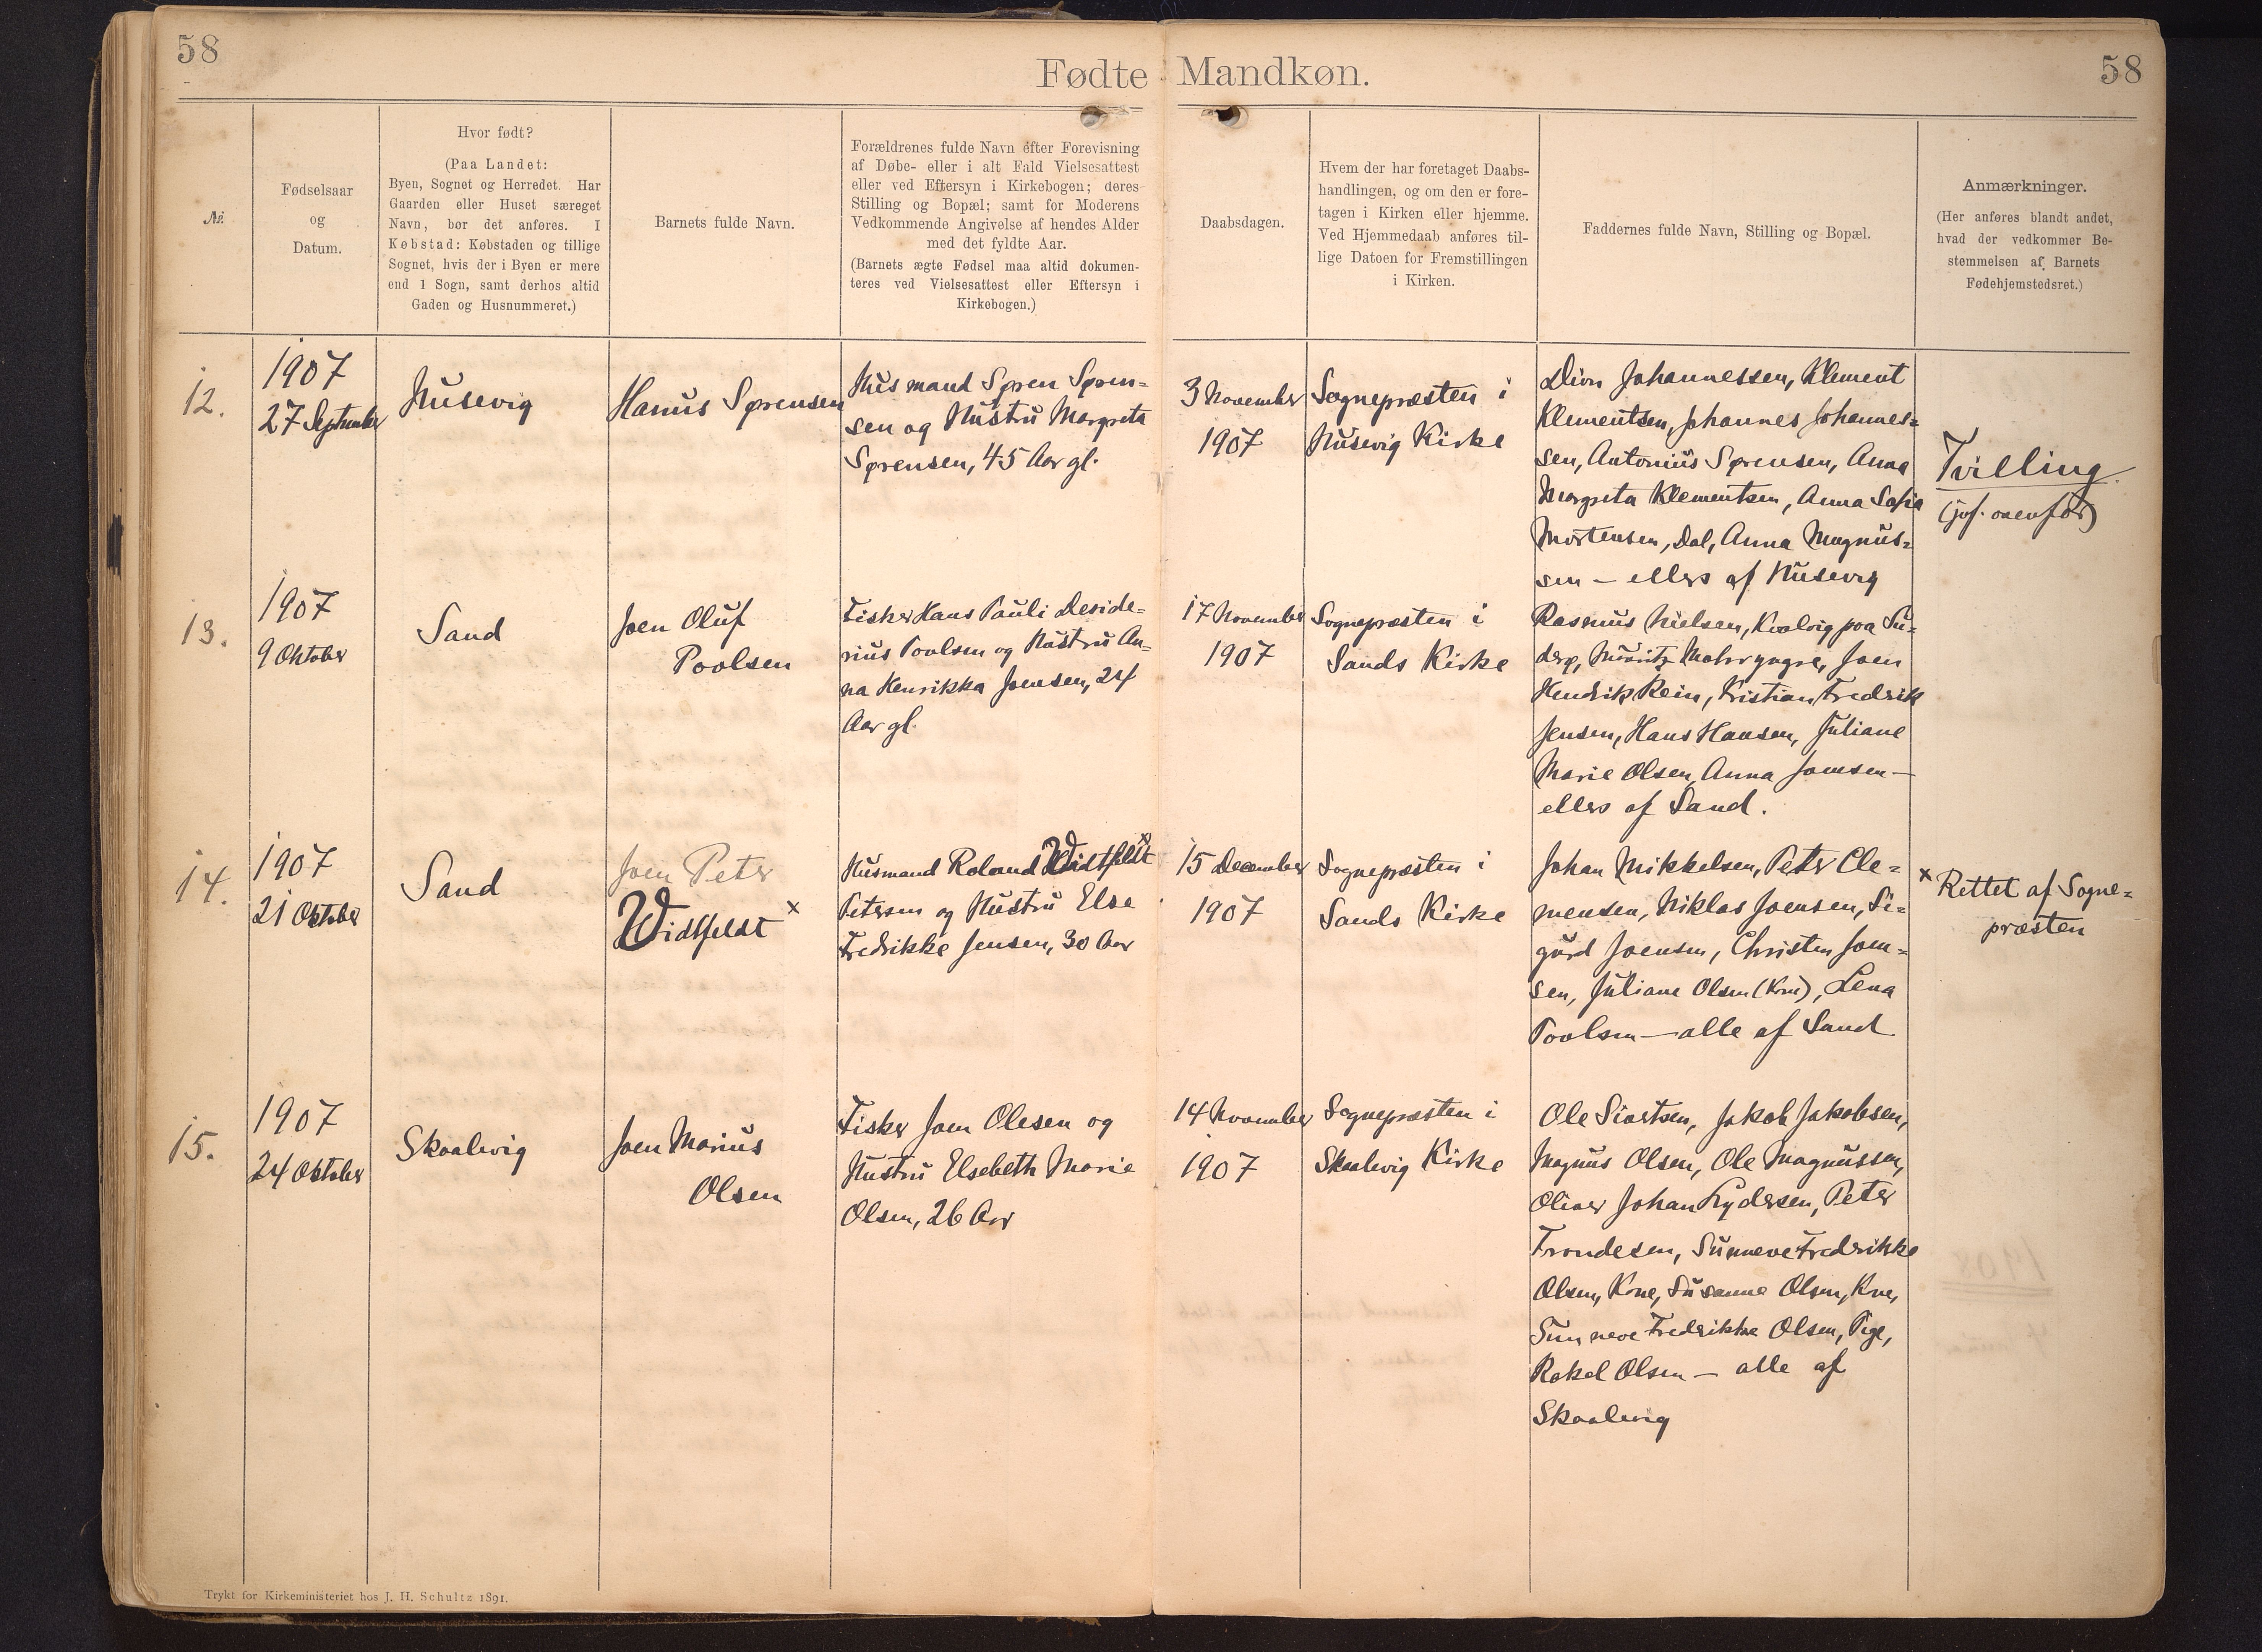 58
Fødte Mandkøn.
58
№.
Fødselsaar
og
Datum.
Hvor født?
(Paa Landet:
Byen, Sognet og Herredet. Har
Gaarden eller Huset særeget
Navn, bør det anføres. I
Købstad: Købstaden og tillige
Sognet, hvis der i Byen er mere
end 1 Sogn, samt derhos altid
Gaden og Husnummeret.)
Barnets fulde Navn.
Forældrenes fulde Navn efter Forevisning
af Døbe- eller i alt Fald Vielsesattest
eller ved Eftersyn i Kirkebogen; deres
Stilling og Bopæl; samt for Moderens
Vedkommende Angivelse af hendes Alder
med det fyldte Aar.
(Barnets ægte Fødsel maa altid dokumen-
teres ved Vielsesattest eller Eftersyn i
Kirkebogen.)
Daabsdagen.
Hvem der har foretaget Daabs-
handlingen, og om den er fore-
tagen i Kirken eller hjemme.
Ved Hjemmedaab anføres til-
lige Datoen for Fremstillingen
i Kirken.
Faddernes fulde Navn, Stilling og Bopæl.
Anmærkninger.
(Her anføres blandt andet,
hvad der vedkommer Be-
stemmelsen af Barnets
Fødehjemstedsret.)
12.
1907
27 September
Husevig
Hanus Sørensen
Husmand Søren Søren-
sen og Hustru Margreta
Sørensen, 45 Aar gl.
3 November
1907
Sognepræsten i
Husevig Kirke
Johannessen, Klement
Klementsen, Johannes Johannes-
sen, Antonius Sørensen, Anna
Margreta Klementsen, Anna Sofia
Mortensen, Dal, Anna Magnus-
sen — ellers af Husevig
Tvilling
(jvf. ovenfor)
13.
1907
9 Oktober
Sand
Joen Oluf
Poolsen
Fisker Hans Pauli Deside-
rius Poolsen og Hustru An-
na Henrikka Joensen, 24
Aar gl.
17 November
1907
Sognepræsten i
Sands Kirke
Rasmus Nielsen, Kvalvig paa Su-
derø, Mouritz Mohr, Joen
Hendrik Rein, Kristian Fredrik
Jensen, Hans Hansen, Juliane
Marie Olsen, Anna Joensen —
ellers af Sand.
14.
1907
21 Oktober
Sand
Joen Peter
Vidtfeldt x
Husmand Roland Vidtfeldt x
Petersen og Hustru Else
Fredrikke Jensen, 30 Aar
15 December
1907
Sognepræsten i
Sands Kirke
Johan Mikkelsen, Peter Cle-
mensen, Niklas Joensen, Si-
gurd Joensen, Christen Joen-
sen, Juliane Olsen (Kone), Lena
Poolsen — alle af Sand
x Rettet af Sogne-
præsten
15.
1907
24 Oktober
Skaalevig
Joen Marius
Olsen
Fisker Joen Olesen og
Hustru Elsebeth Marie
Olsen, 26 Aar
14 November
1907
Sognepræsten i
Skaalevig Kirke
Ole Siortsen, Jakob Jakobsen,
Magnus Olsen, Ole Magnussen,
Oliver Johan Lydersen, Peter
Trondesen, Sunneve Fredrikke
Olsen, Kone, Susanne Olsen, Kone,
Sunneve Fredrikke Olsen, Pige,
Rakel Olsen — alle af
Skaalevig
Trykt for Kirkeministeriet hos J. H. Schultz 1891.